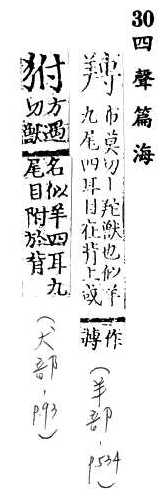 30 四聲篇海
布莫切丨獸也似羊
九尾四耳目在背上或作
(羊部, p534)
方遇切獸
名似羊四耳九
尾目附於背
(犬部, p93)